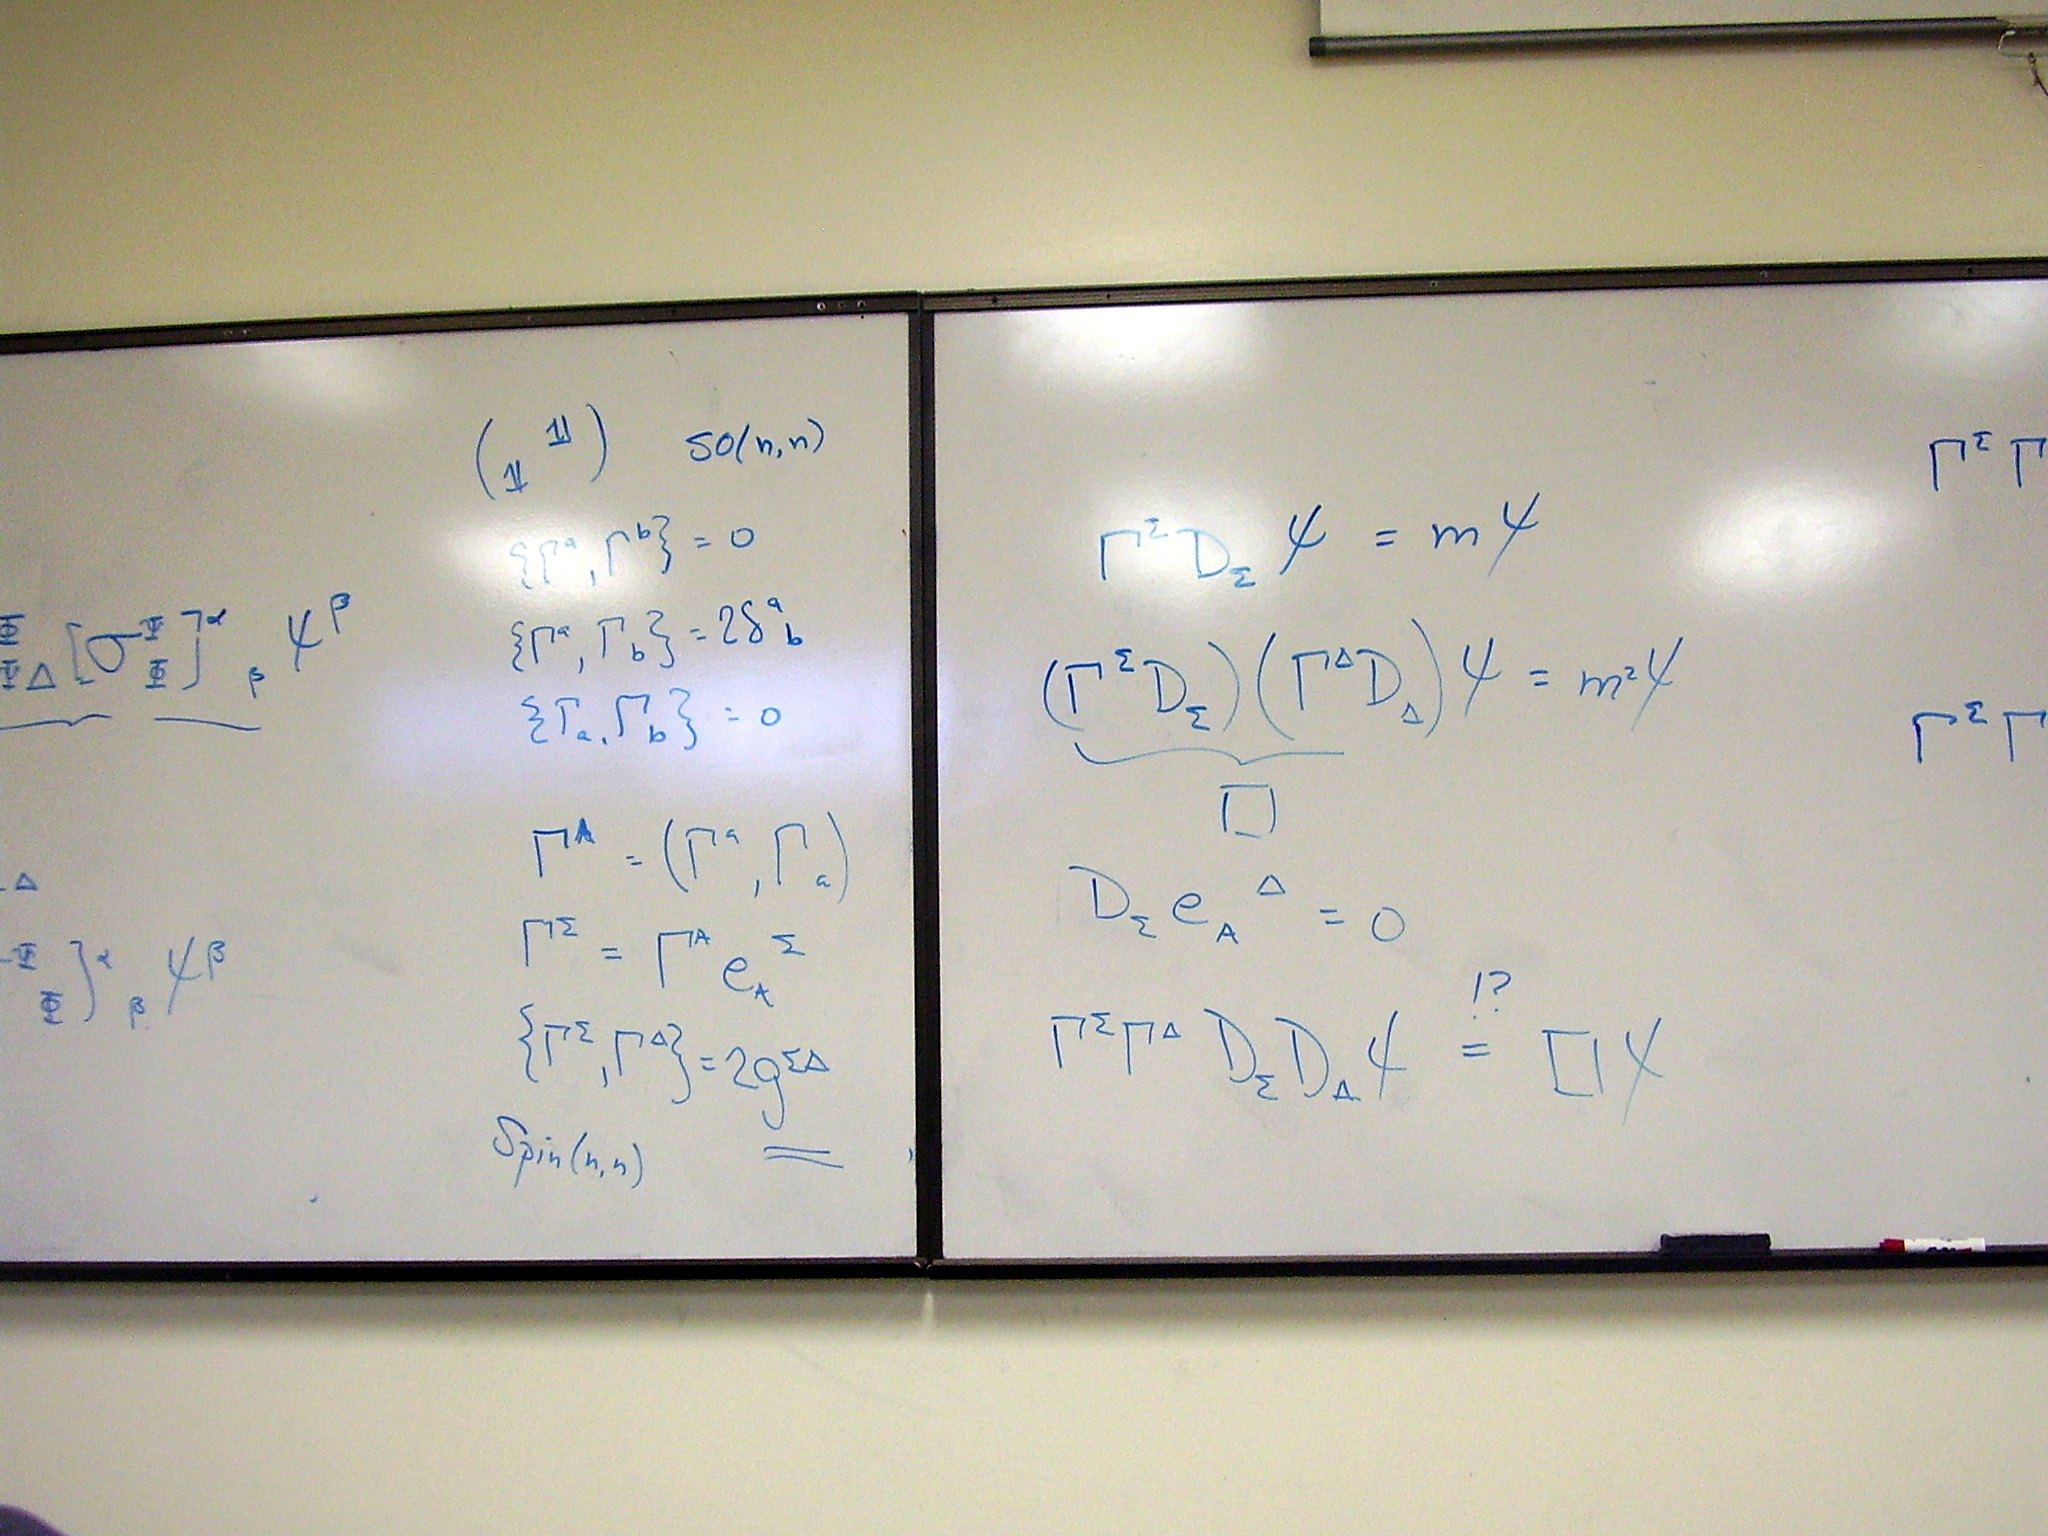 Φ ΨΔ [σ^Ψ_Φ]^α_β ψ^β
Δ
Φ Φ]^α_β ψ^β
( 𝟙 𝟙 ) SO(n,n)
{Γ^a, Γ^b} = 0
{Γ^a, Γ_b} = 2δ^a_b
{Γ_a, Γ_b} = 0
Γ^A = (Γ^a, Γ_a)
Γ^Σ = Γ^A e_A^Σ
{Γ^Σ, Γ^Δ} = 2g^ΣΔ
Spin(n,n)
Γ^Σ D_Σ ψ = mψ
(Γ^Σ D_Σ)(Γ^Δ D_Δ) ψ = m²ψ
□
D_Σ e_A^Δ = 0
!?
Γ^Σ Γ^Δ D_Σ D_Δ ψ = □ψ
Γ^Σ Γ
Γ^Σ Γ